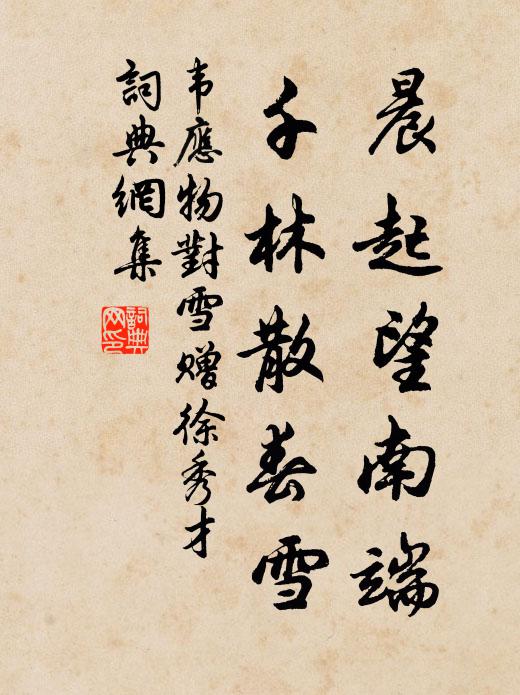 晨起望南端
千林散春雪
韦應物對雪赠徐秀才
詞典網集
詞典
网印